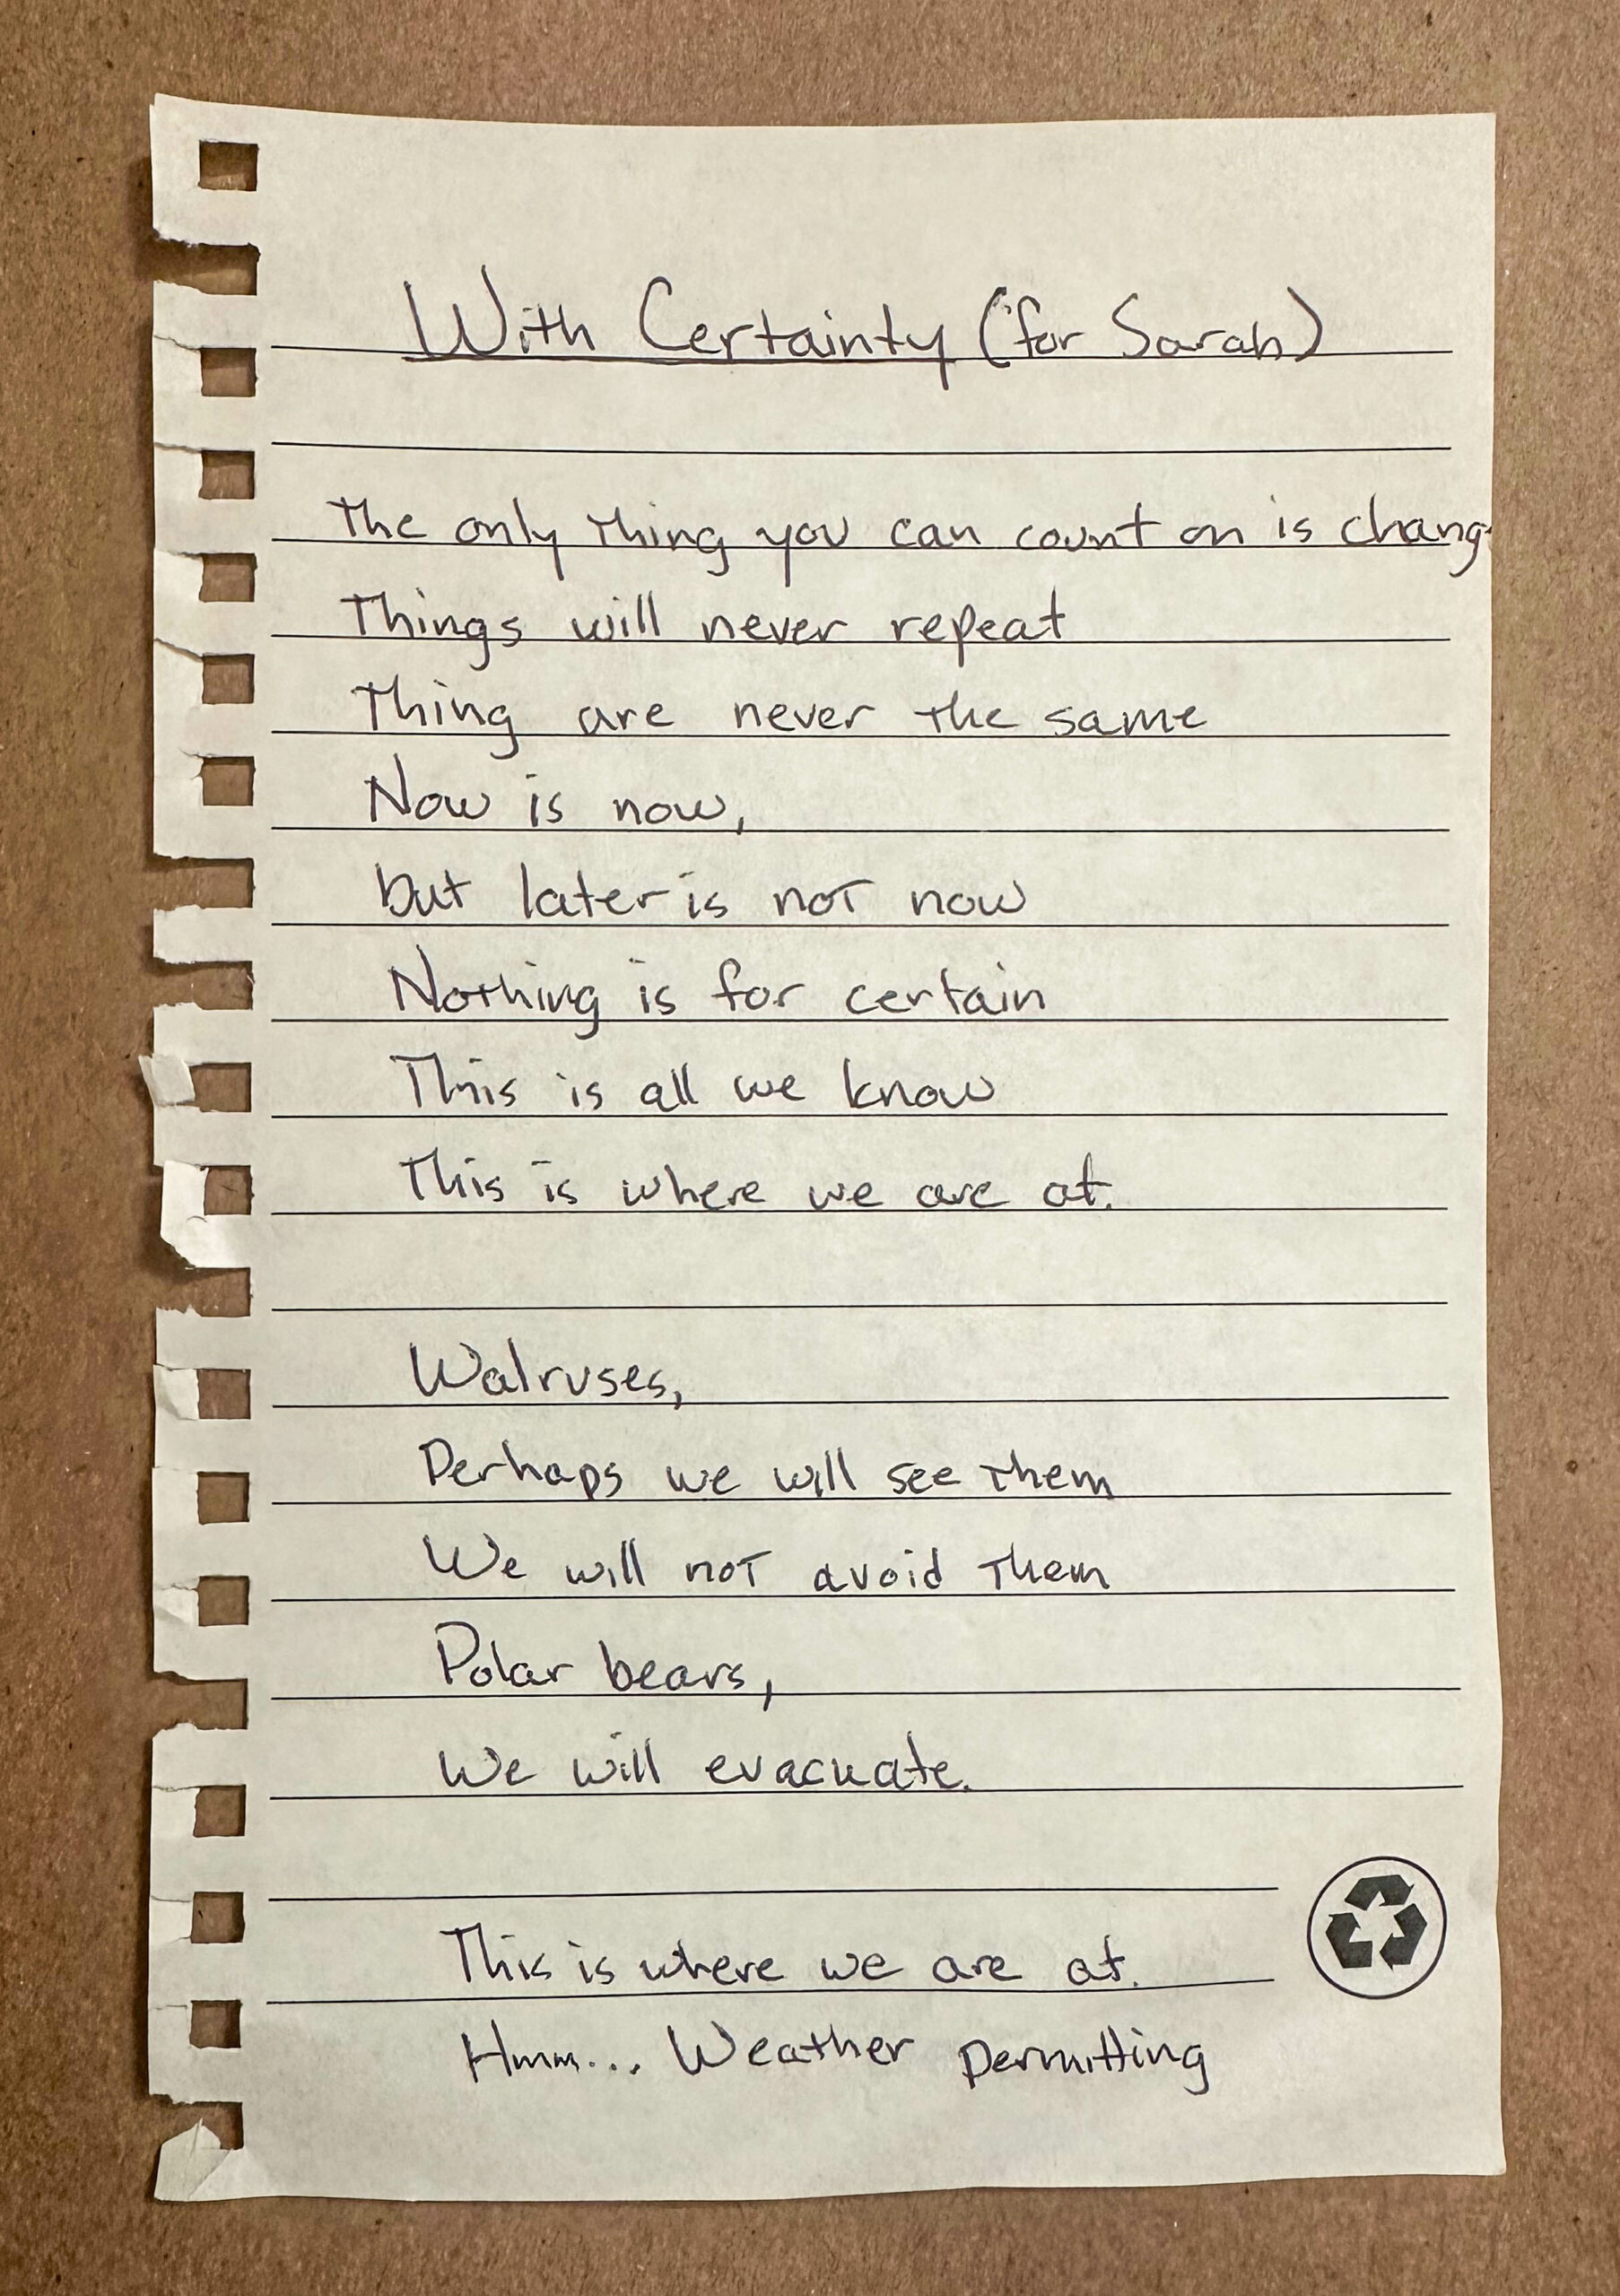 With Certainty (for Sarah)
The only thing you can count on is chang
Things will never repeat
Thing are never the same
Now is now,
but later is not now
Nothing is for certain
This is all we know
This is where we are at.
Walruses,
Perhaps we will see them
We will not avoid them
Polar bears,
We will evacuate.
This is where we are at.
Hmm... Weather permitting